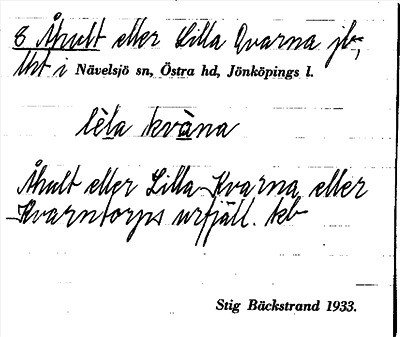 8 Åhult eller Lilla Qvarna jb,
tkt i Nävelsjö sn, Östra hd, Jönköpings l.
lèla kvàna
Åhult eller Lilla Kvarna eller
Kvarntorps urfjäll. kb
Stig Bäckstrand 1933.